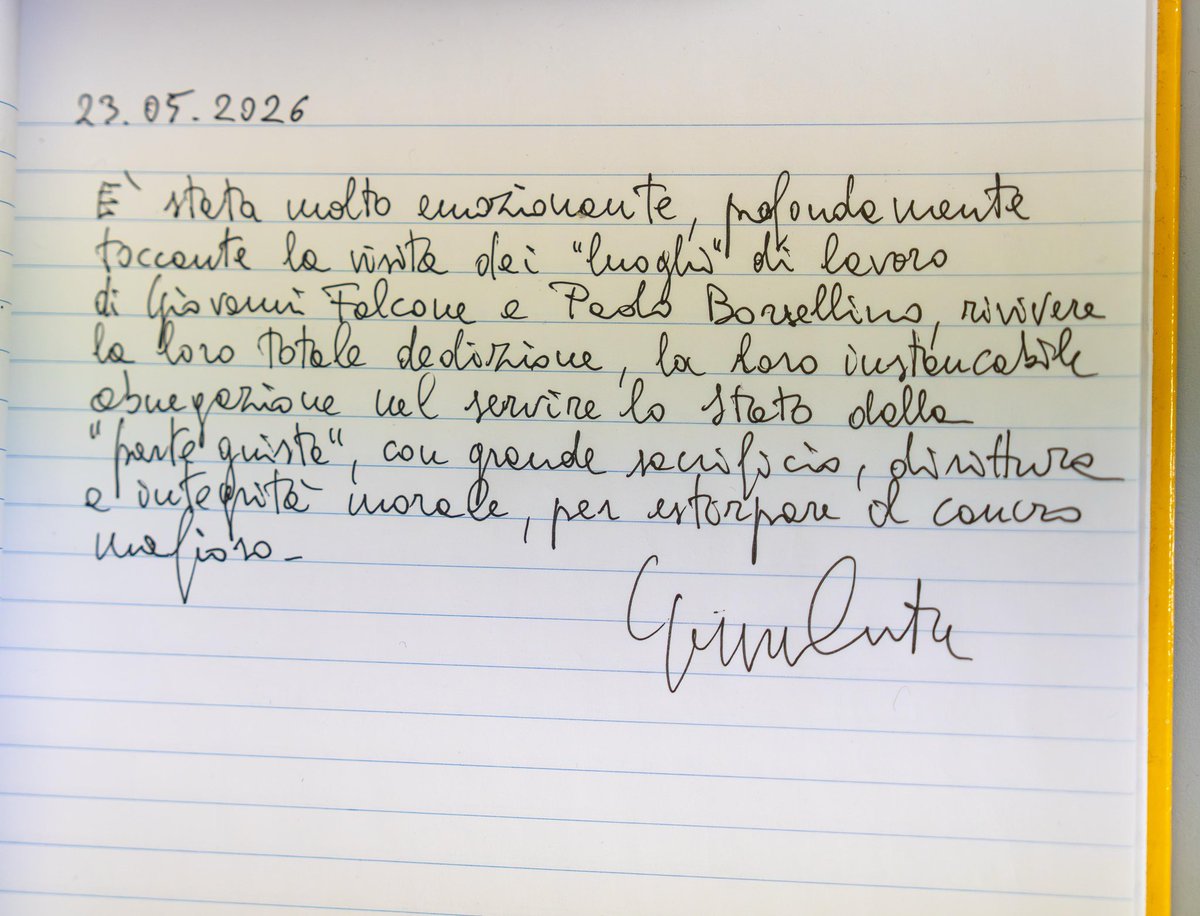 23.05.2026
E' stata molto emozionante, profondamente
toccante la visita dei "luoghi" di lavoro
di Giovanni Falcone e Paolo Borsellino, rivivere
la loro totale dedizione, la loro instancabile
abnegazione nel servire lo stato dalla
"parte giusta", con grande sacrificio, dirittura
e integrità morale, per estirpare il cancro
mafioso -